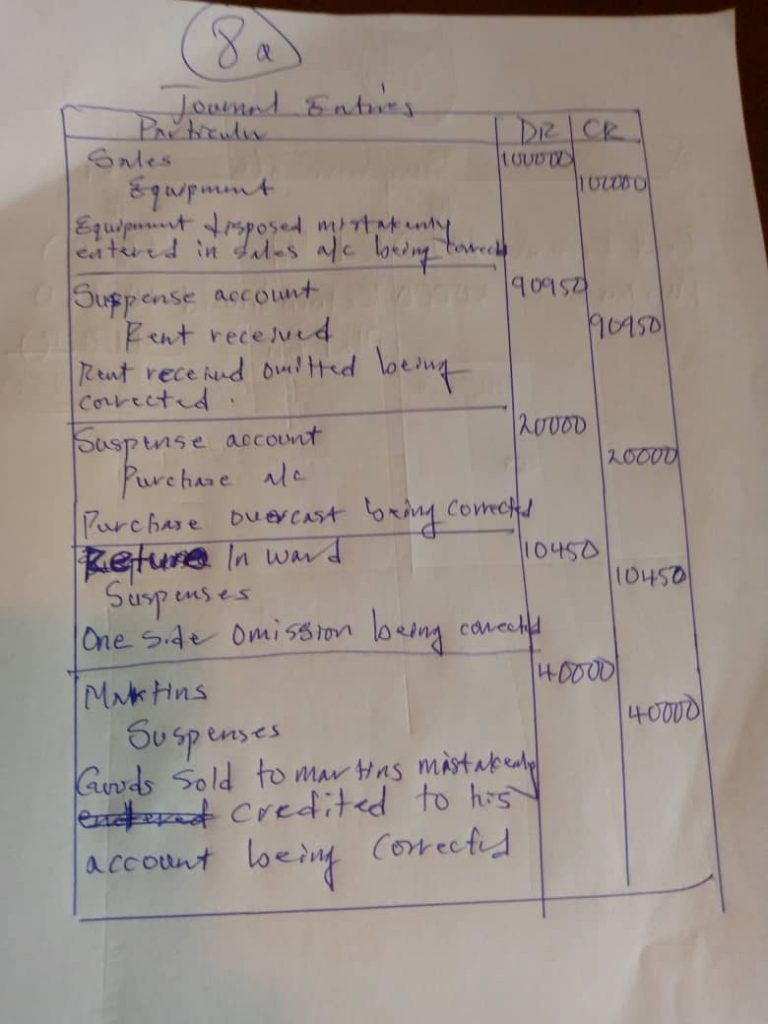 8a
Journal Entries
Particular DR CR
Sales 100000
Equipment 100000
Equipment disposed mistakenly
entered in sales a/c being
Suspense account 90950
Rent received 90950
Rent received omitted being
corrected.
Suspense account 20000
Purchase a/c 20000
Purchase overcast being corrected
Return In ward 10450
Suspenses 10450
One side omission being corrected
Martins 40000
Suspenses 40000
Goods Sold to martins mistakenly
credited to his
account being corrected